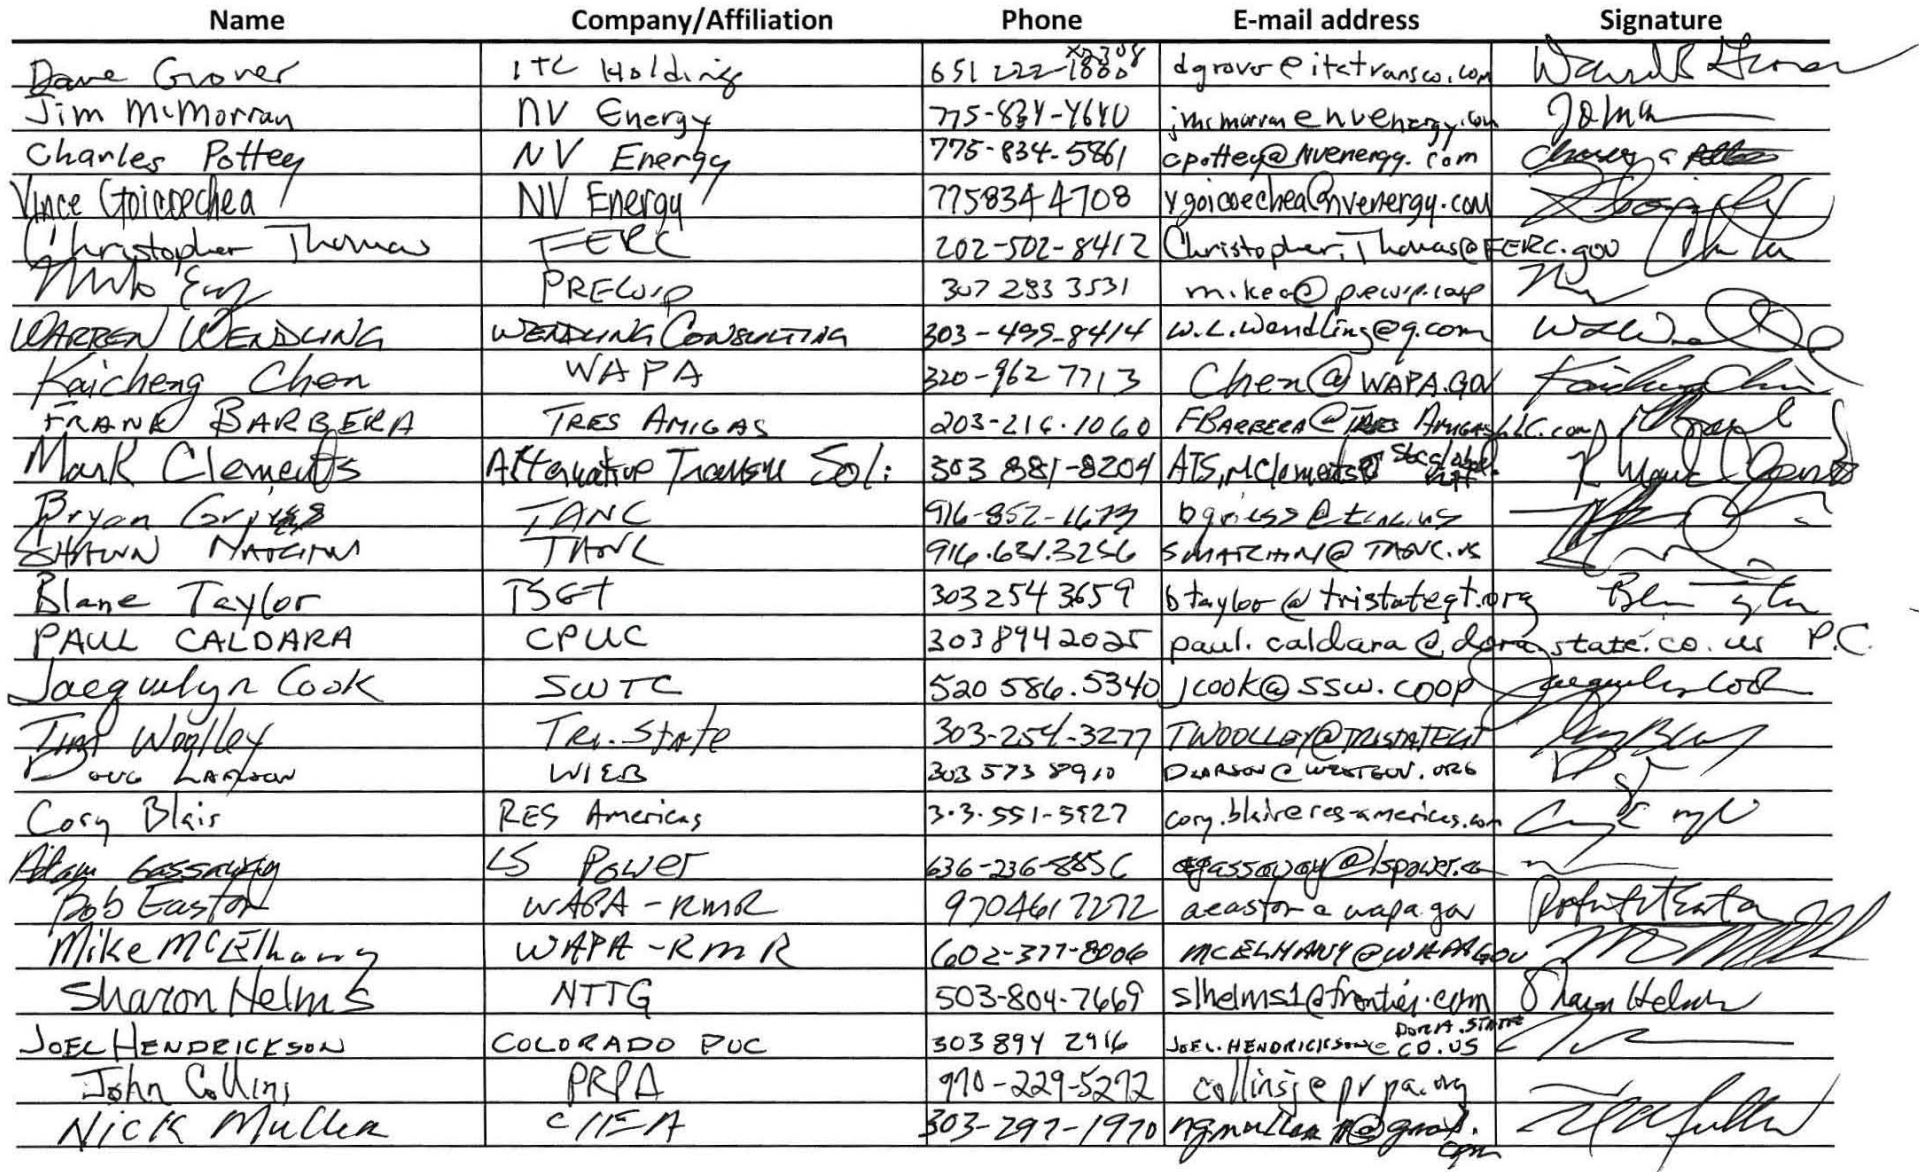 Name Company/Affiliation Phone E-mail address Signature
Dave Grover ITC Holdings 651 222-1000 x2308 dgrover@itctransco.com
Jim McMorran NV Energy 775-834-4640 jmcmorran@nvenergy.com
Charles Pottey NV Energy 775-834-5861 cpottey@nvenergy.com
Vince Goicoechea NV Energy 7758344708 vgoicoechea@nvenergy.com
Christopher Thomas FERC 202-502-8412 Christopher.Thomas@FERC.gov
PRECorp 307 283 3531
WARREN WENDLING WENDLING CONSULTING 303-499-8414 w.L.wendling@q.com
Kaicheng Chen WAPA 320-962 7713 Chen@WAPA.GOV Kaicheng Chen
FRANK BARBERA TRES AMIGAS 203-216.1060 FBARBERA@TRES AMIGASLLC.com
Mark Clements Alternative Transm Sol: 303 881-8204 R Mark Clements
Bryan Griess TANC 916-852-1673 bgriess@tanc.us
SHAWN MATCHIM TANC 916.631.3256 SMATCHIM@TANC.US
Blane Taylor TSGT 303 254 3659 btaylor@tristategt.org Blane Taylor
PAUL CALDARA CPUC 303 894 2025 paul.caldara@dora.state.co.us P.C.
Jacquelyn Cook SWTC 520 586.5340 jcook@ssw.coop Jacquelyn Cook
Tim Woolley Tri.State 303-254-3277 TWOOLLEY@TRISTATEGT
DOUG LARSON WIEB 303 573 8910 DLARSON@WESTGOV.ORG
Cory Blair RES Americas 3.3.551-5527 cory.blair@res-americas.com
Adam Gassaway LS Power 636-236-8856 agassaway@lspower.co
Bob Easton WAPA-RMR 9704617272 aeaston@wapa.gov
Mike McElhany WAPA-RMR 602-377-8006 MCELHANY@WAPA.GOV
Sharon Helms NTTG 503-804-7669 slhelms1@frontier.com Sharon Helms
JOEL HENDRICKSON COLORADO PUC 303 894 2916 JOEL.HENDRICKSON@DORA.STATE.CO.US
John Collins PRPA 970-229-5272 collinsj@prpa.org
Nick Muller CIEA 303-297-1970